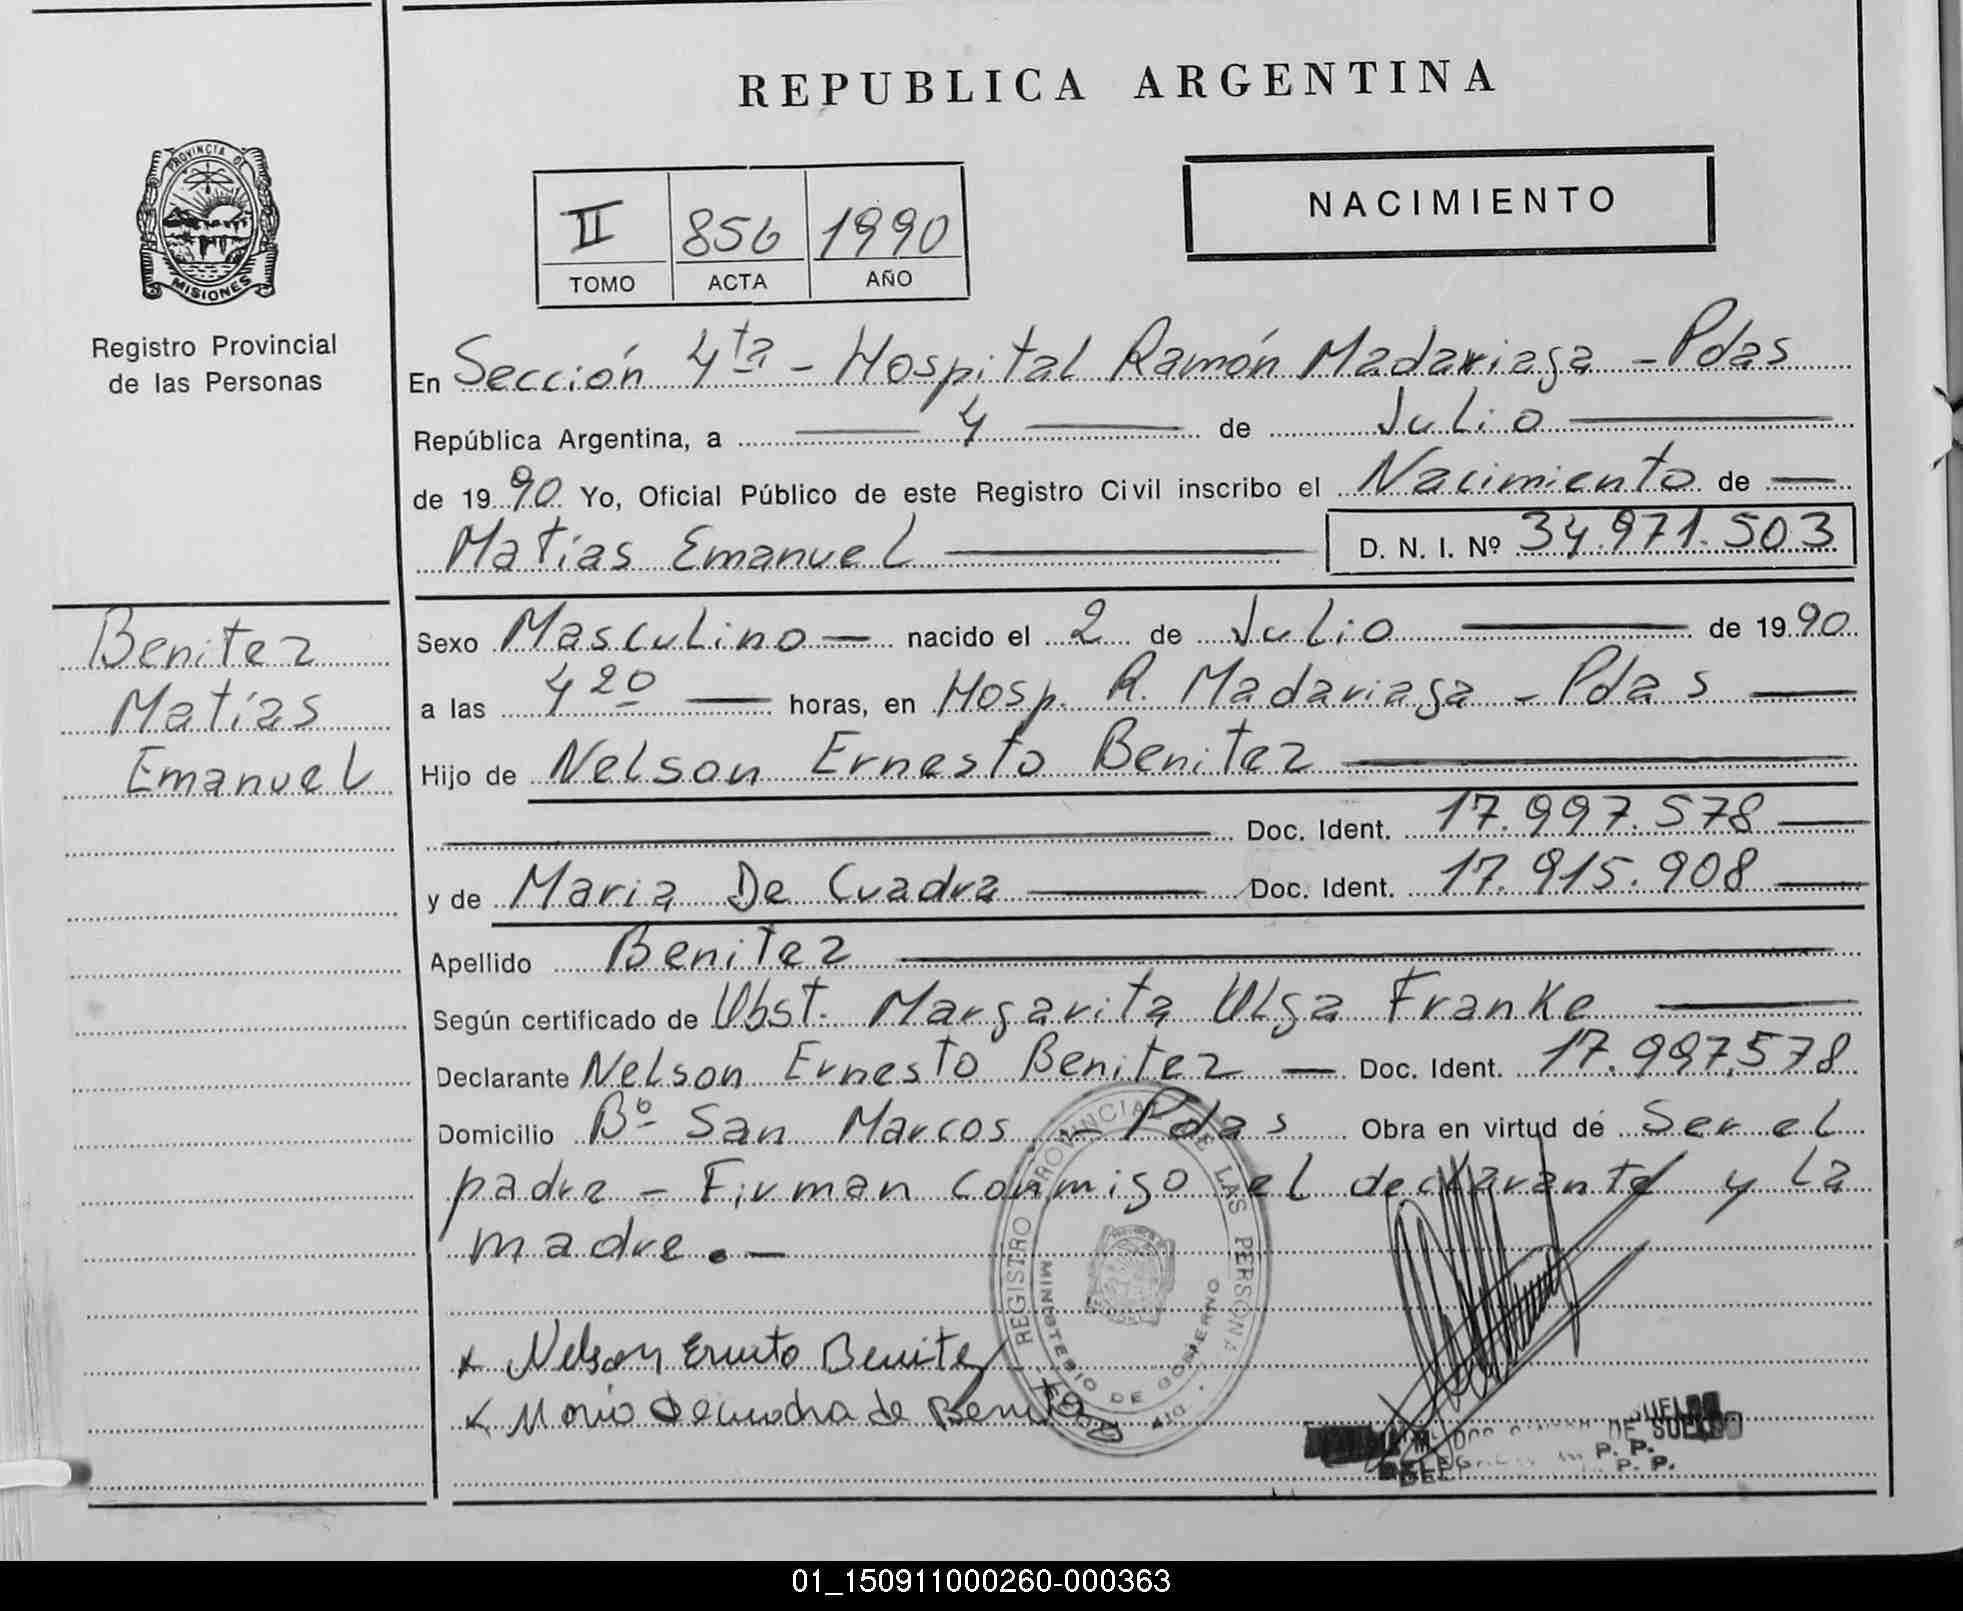 REPUBLICA ARGENTINA
PROVINCIA DE
MISIONES
Registro Provincial
de las Personas
II 856 1990
TOMO ACTA AÑO
NACIMIENTO
En Sección 4ta - Hospital Ramón Madariaga - Pdas
República Argentina, a 4 de Julio
de 1990 Yo, Oficial Público de este Registro Civil inscribo el Nacimiento de
Matías Emanuel D. N. I. Nº 34.971.503
Benitez
Matías
Emanuel
Sexo Masculino nacido el 2 de Julio de 1990
a las 4 20 horas, en Hosp. R. Madariaga - Pdas
Hijo de Nelson Ernesto Benitez
Doc. Ident. 17.997.578
y de Maria De Cuadra Doc. Ident. 17.915.908
Apellido Benitez
Según certificado de Obst. Margarita Olga Franke
Declarante Nelson Ernesto Benitez Doc. Ident. 17.997.578
Domicilio Bº San Marcos - Pdas Obra en virtud de Ser el
padre - Firman conmigo el declarante y la
madre.-
REGISTRO PROVINCIAL DE LAS PERSONAS
MINISTERIO DE GOBIERNO
x Nelson Ernesto Benitez
x Maria Decuadra de Benitez
DE SUELDO
P. P.
P. P.
01_150911000260-000363